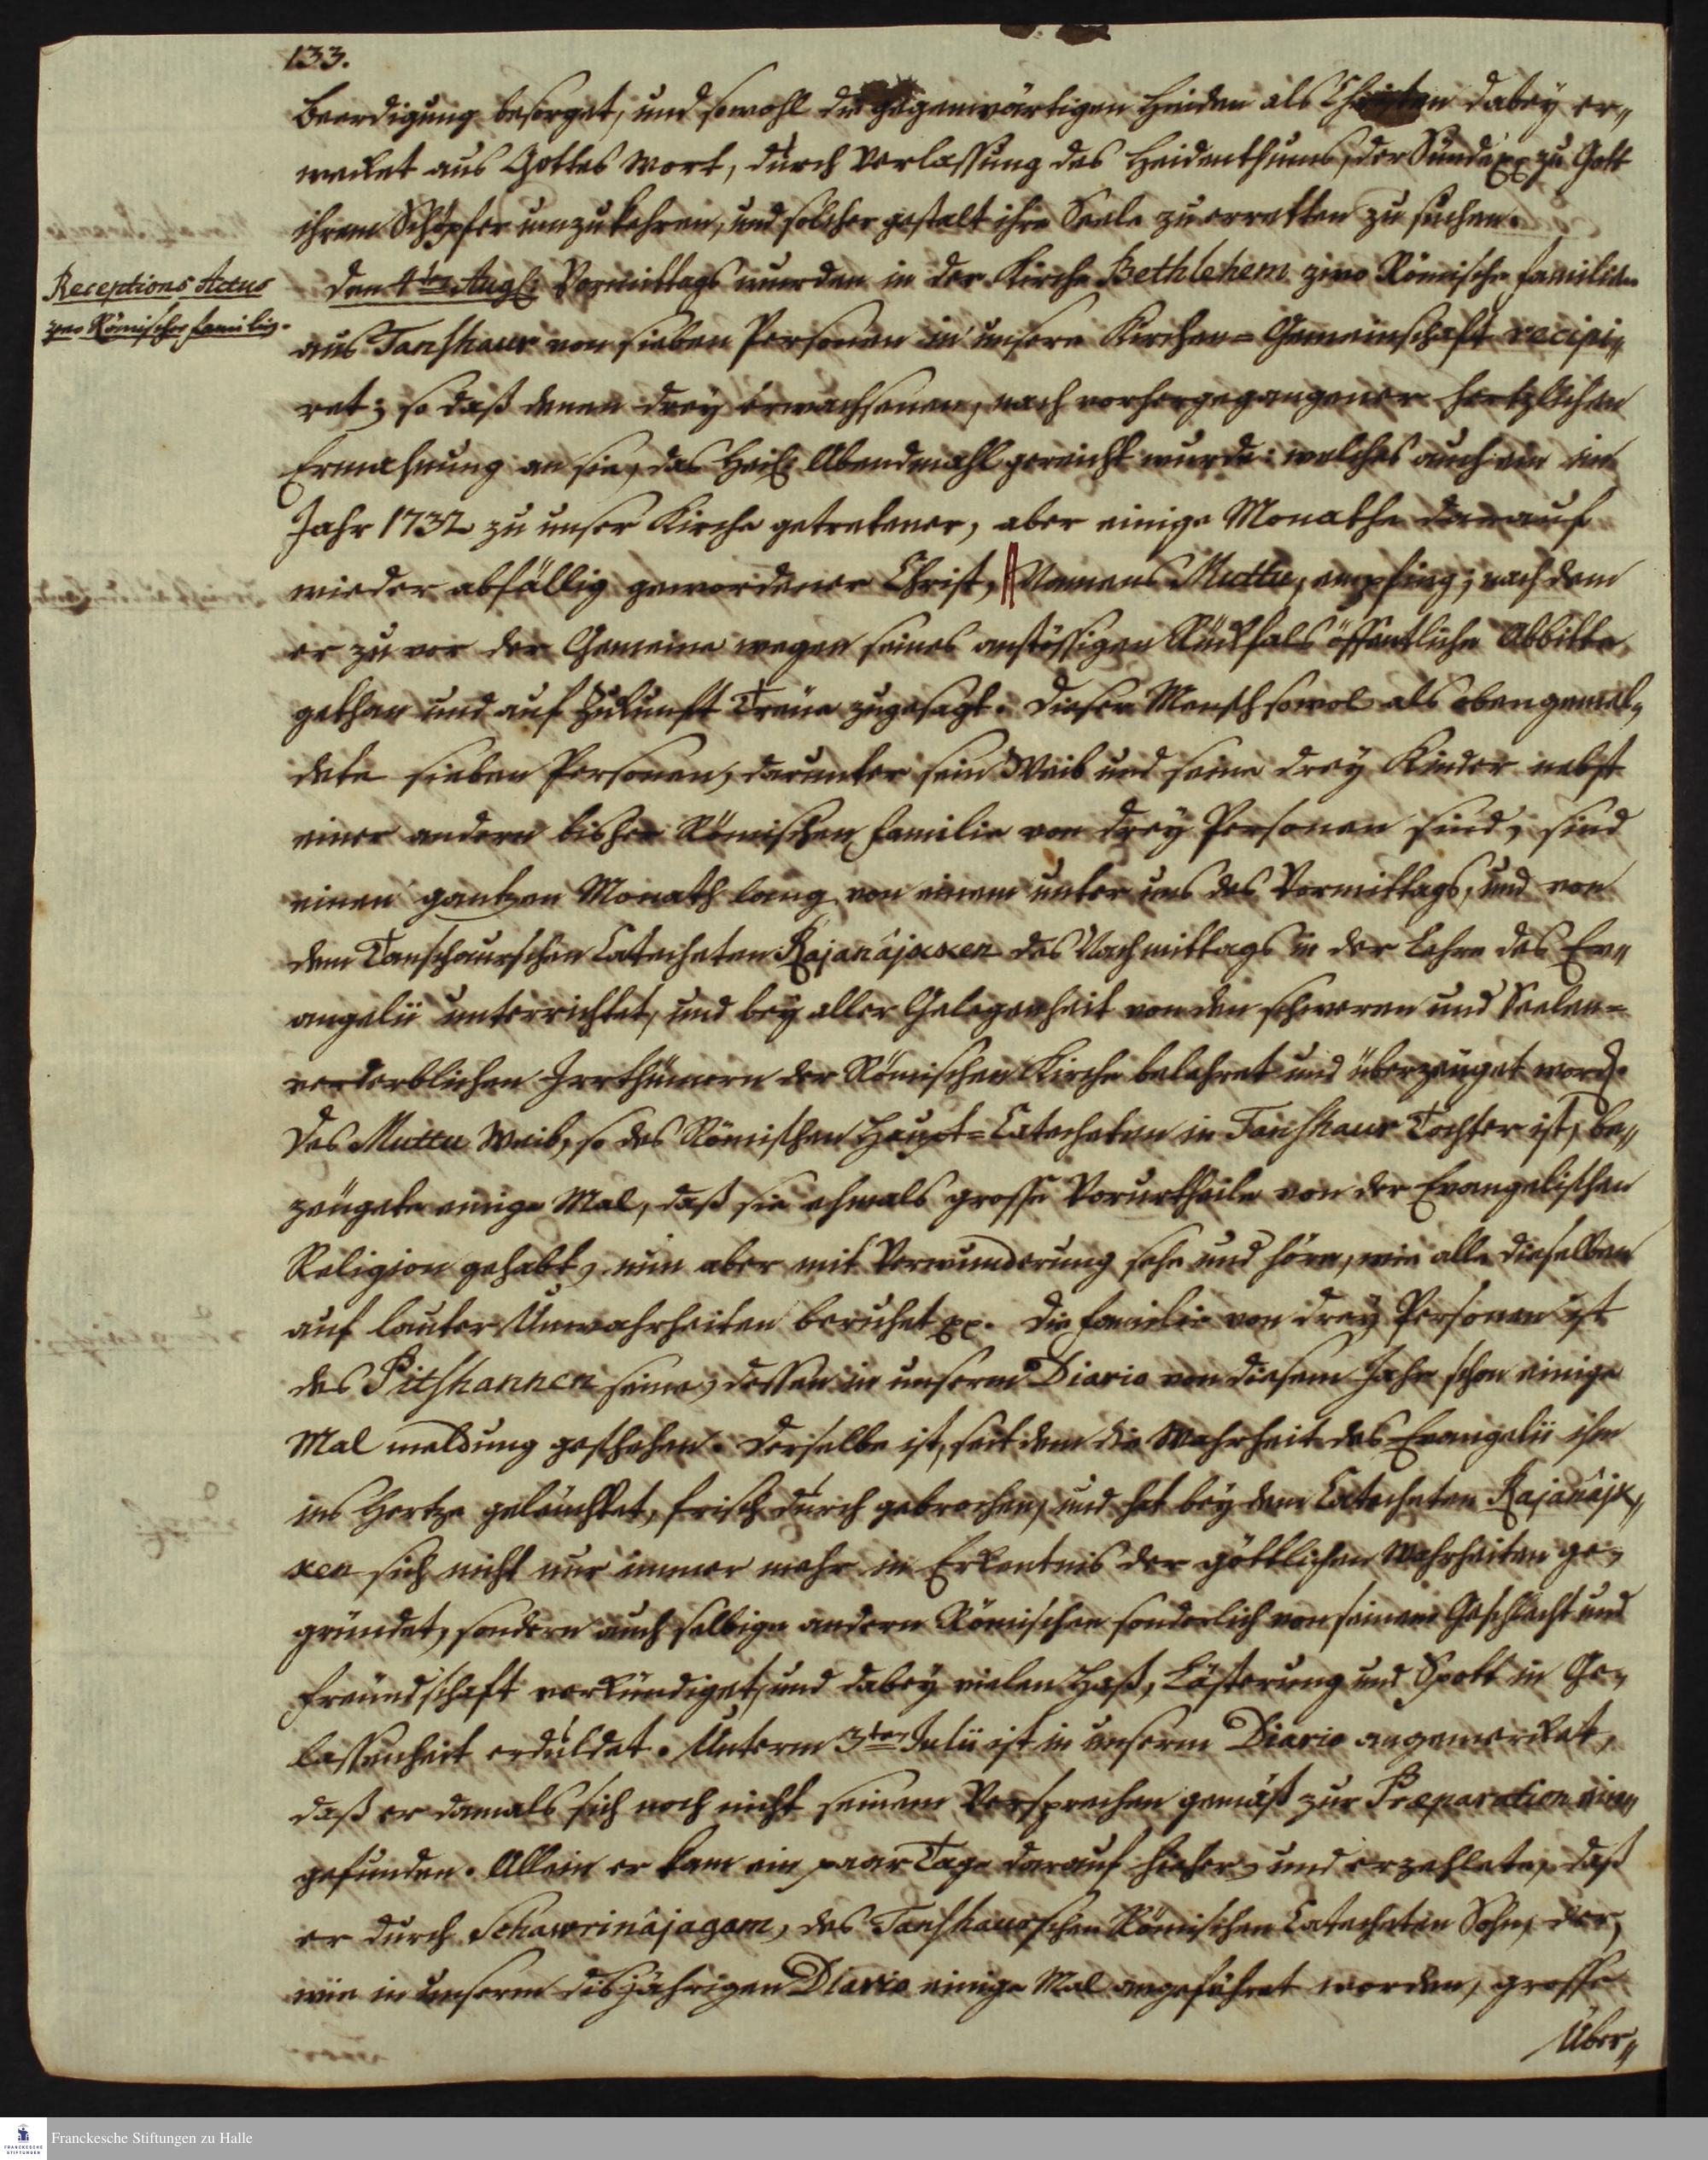 133.
Beerdigung besorget, und sowohl die gegenwärtigen Heiden als Christen dabey er„
wecket aus Gottes Wort, durch Verlassung des Heidenthums, der Sünde pp zu Gott
ihrem Schöpfer umzukehren, und solcher gestalt ihre Seele zu erretten zu suchen.
Receptions Actus
zwo Römischer Familien.
Den 4ten Aug: Vormittags wurden in der Kirche Bethlehem zwo Römische Familien
aus Tanshaur von sieben Personen in unsere Kirchen=Gemeinschaft recipi„
ret; so daß denen drey erwachsenen, nach vorhergegangener hertzlichen
Ermahnung an sie, das Heil: Abendmahl gereicht wurde: welches auch ein im
Jahr 1732 zu unser Kirche getretener, aber einige Monathe darauf
wieder abfällig gewordener Christ, Namens Muttu, empfing; nach dem
er zu vor der Gemeine wegen seines anstössigen Rückfals öffentliche Abbitte
gethan und auf Zukunft Treüe zugesagt. Dieser Mensch sowol als oben gemel„
dete sieben Personen, darunter sein Weib und seine drey Kinder nebst
einer andern bisher Römischen Familie von drey Personen sind, sind
einen gantzen Monath lang von einem unter uns des Vormittags, und von
dem Tanschaurschen Catecheten Rajanâjaxen des Nachmittags in der Lehre des Ev„
angelii unterrichtet, und bey aller Gelegenheit von den schweren und Seelen=
verderblichen Irrthümern der Römischen Kirche belehret und überzeuget word.
Des Muttu Weib, so des Römischen Haupt=Catecheten in Tanshaur Tochter ist, be„
zeügete einige Mal, daß sie ehmals grosse Vorurtheile von der Evangelischen
Religion gehabt, nun aber mit Verwunderung sehe und höre, wie alle dieselben
auf lauter Unwahrheiten beruhet pp. Die Familie von drey Personen ist
des Pitshannen seine, dessen in unserm Diario von diesem Jahre schon einige
Mal meldung geschehen. Derselbe ist, seit dem die Wahrheit des Evangelii ihm
ins Hertze geleüchtet, frisch durch gebrochen, und hat bey dem Catecheten Rajanâja„
xen sich nicht nur immer mehr in Erkentnis der göttlichen Wahrheiten ge„
gründet, sondern auch selbige andern Römischen sonderlich von seinem Geschlecht und
Freündschaft verkündiget, und dabey vielen Haß, Lästerung und Spott in Ge„
lassenheit erduldet. Unterm 3ten Julii ist in unserm Diario angemercket,
daß er damals sich noch nicht seinem Versprechen gemäß zur Præparation ein„
gefunden. Allein er kam ein paar Tage darauf hieher, und erzehlete, daß
er durch Schawrinâjagam, des Tanshaurschen Römischen Catecheten Sohn, der,
wie in unserm disjährigen Diario einige Mal angeführet worden, grosse
Über„
Franckesche Stiftungen zu Halle